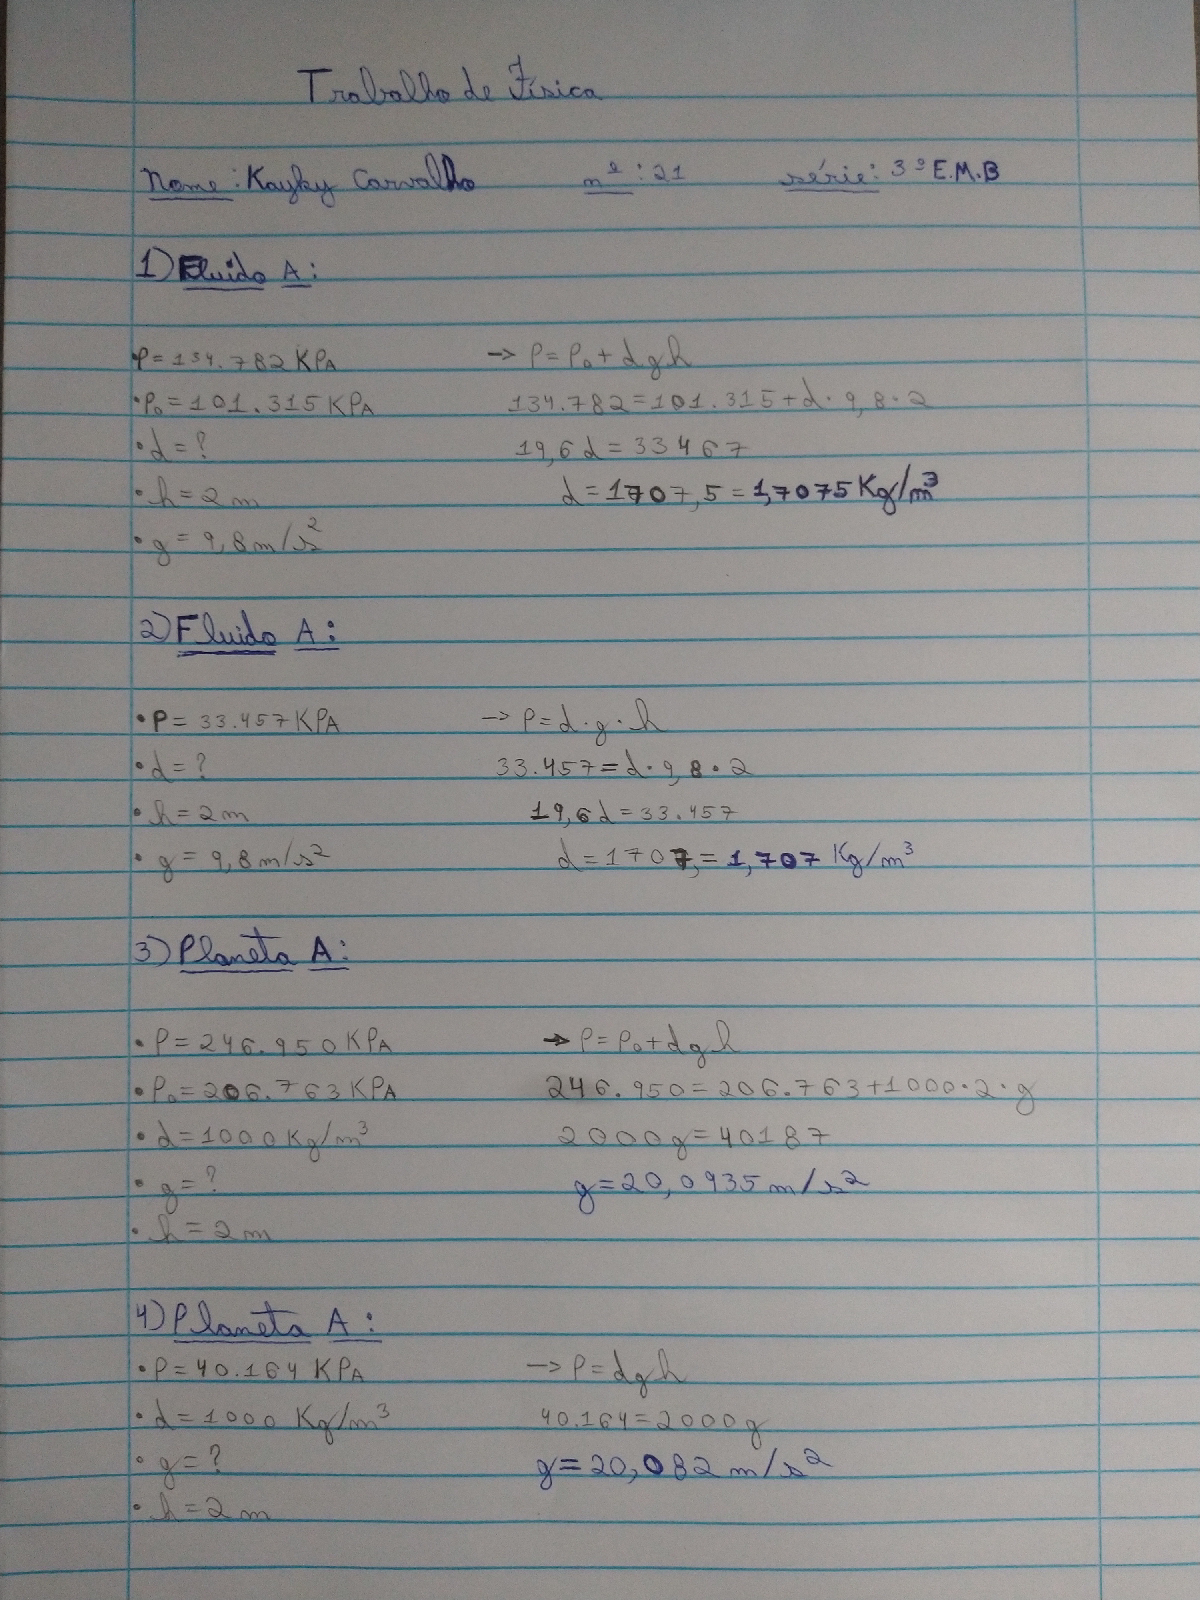 Trabalho de Física
Nome: Kayky Carvalho nº: 21 série: 3º E.M.B
1) Fluido A:
•P = 134.782 KPA -> P = P₀ + dgh
•P₀ = 101.315 KPA 134.782 = 101.315 + d · 9,8 · 2
•d = ? 19,6d = 33467
•h = 2m d = 1707,5 = 1,7075 Kg/m³
•g = 9,8 m/s²
2) Fluido A:
•P = 33.457 KPA -> P = d · g · h
•d = ? 33.457 = d · 9,8 · 2
•h = 2m 19,6d = 33.457
•g = 9,8 m/s² d = 1707, = 1,707 Kg/m³
3) Planeta A:
•P = 246.950 KPA -> P = P₀ + dgh
•P₀ = 206.763 KPA 246.950 = 206.763 + 1000 · 2 · g
•d = 1000 Kg/m³ 2000g = 40187
•g = ? g = 20,0935 m/s²
•h = 2m
4) Planeta A:
•P = 40.164 KPA -> P = dgh
•d = 1000 Kg/m³ 40.164 = 2000g
•g = ? g = 20,082 m/s²
•h = 2m